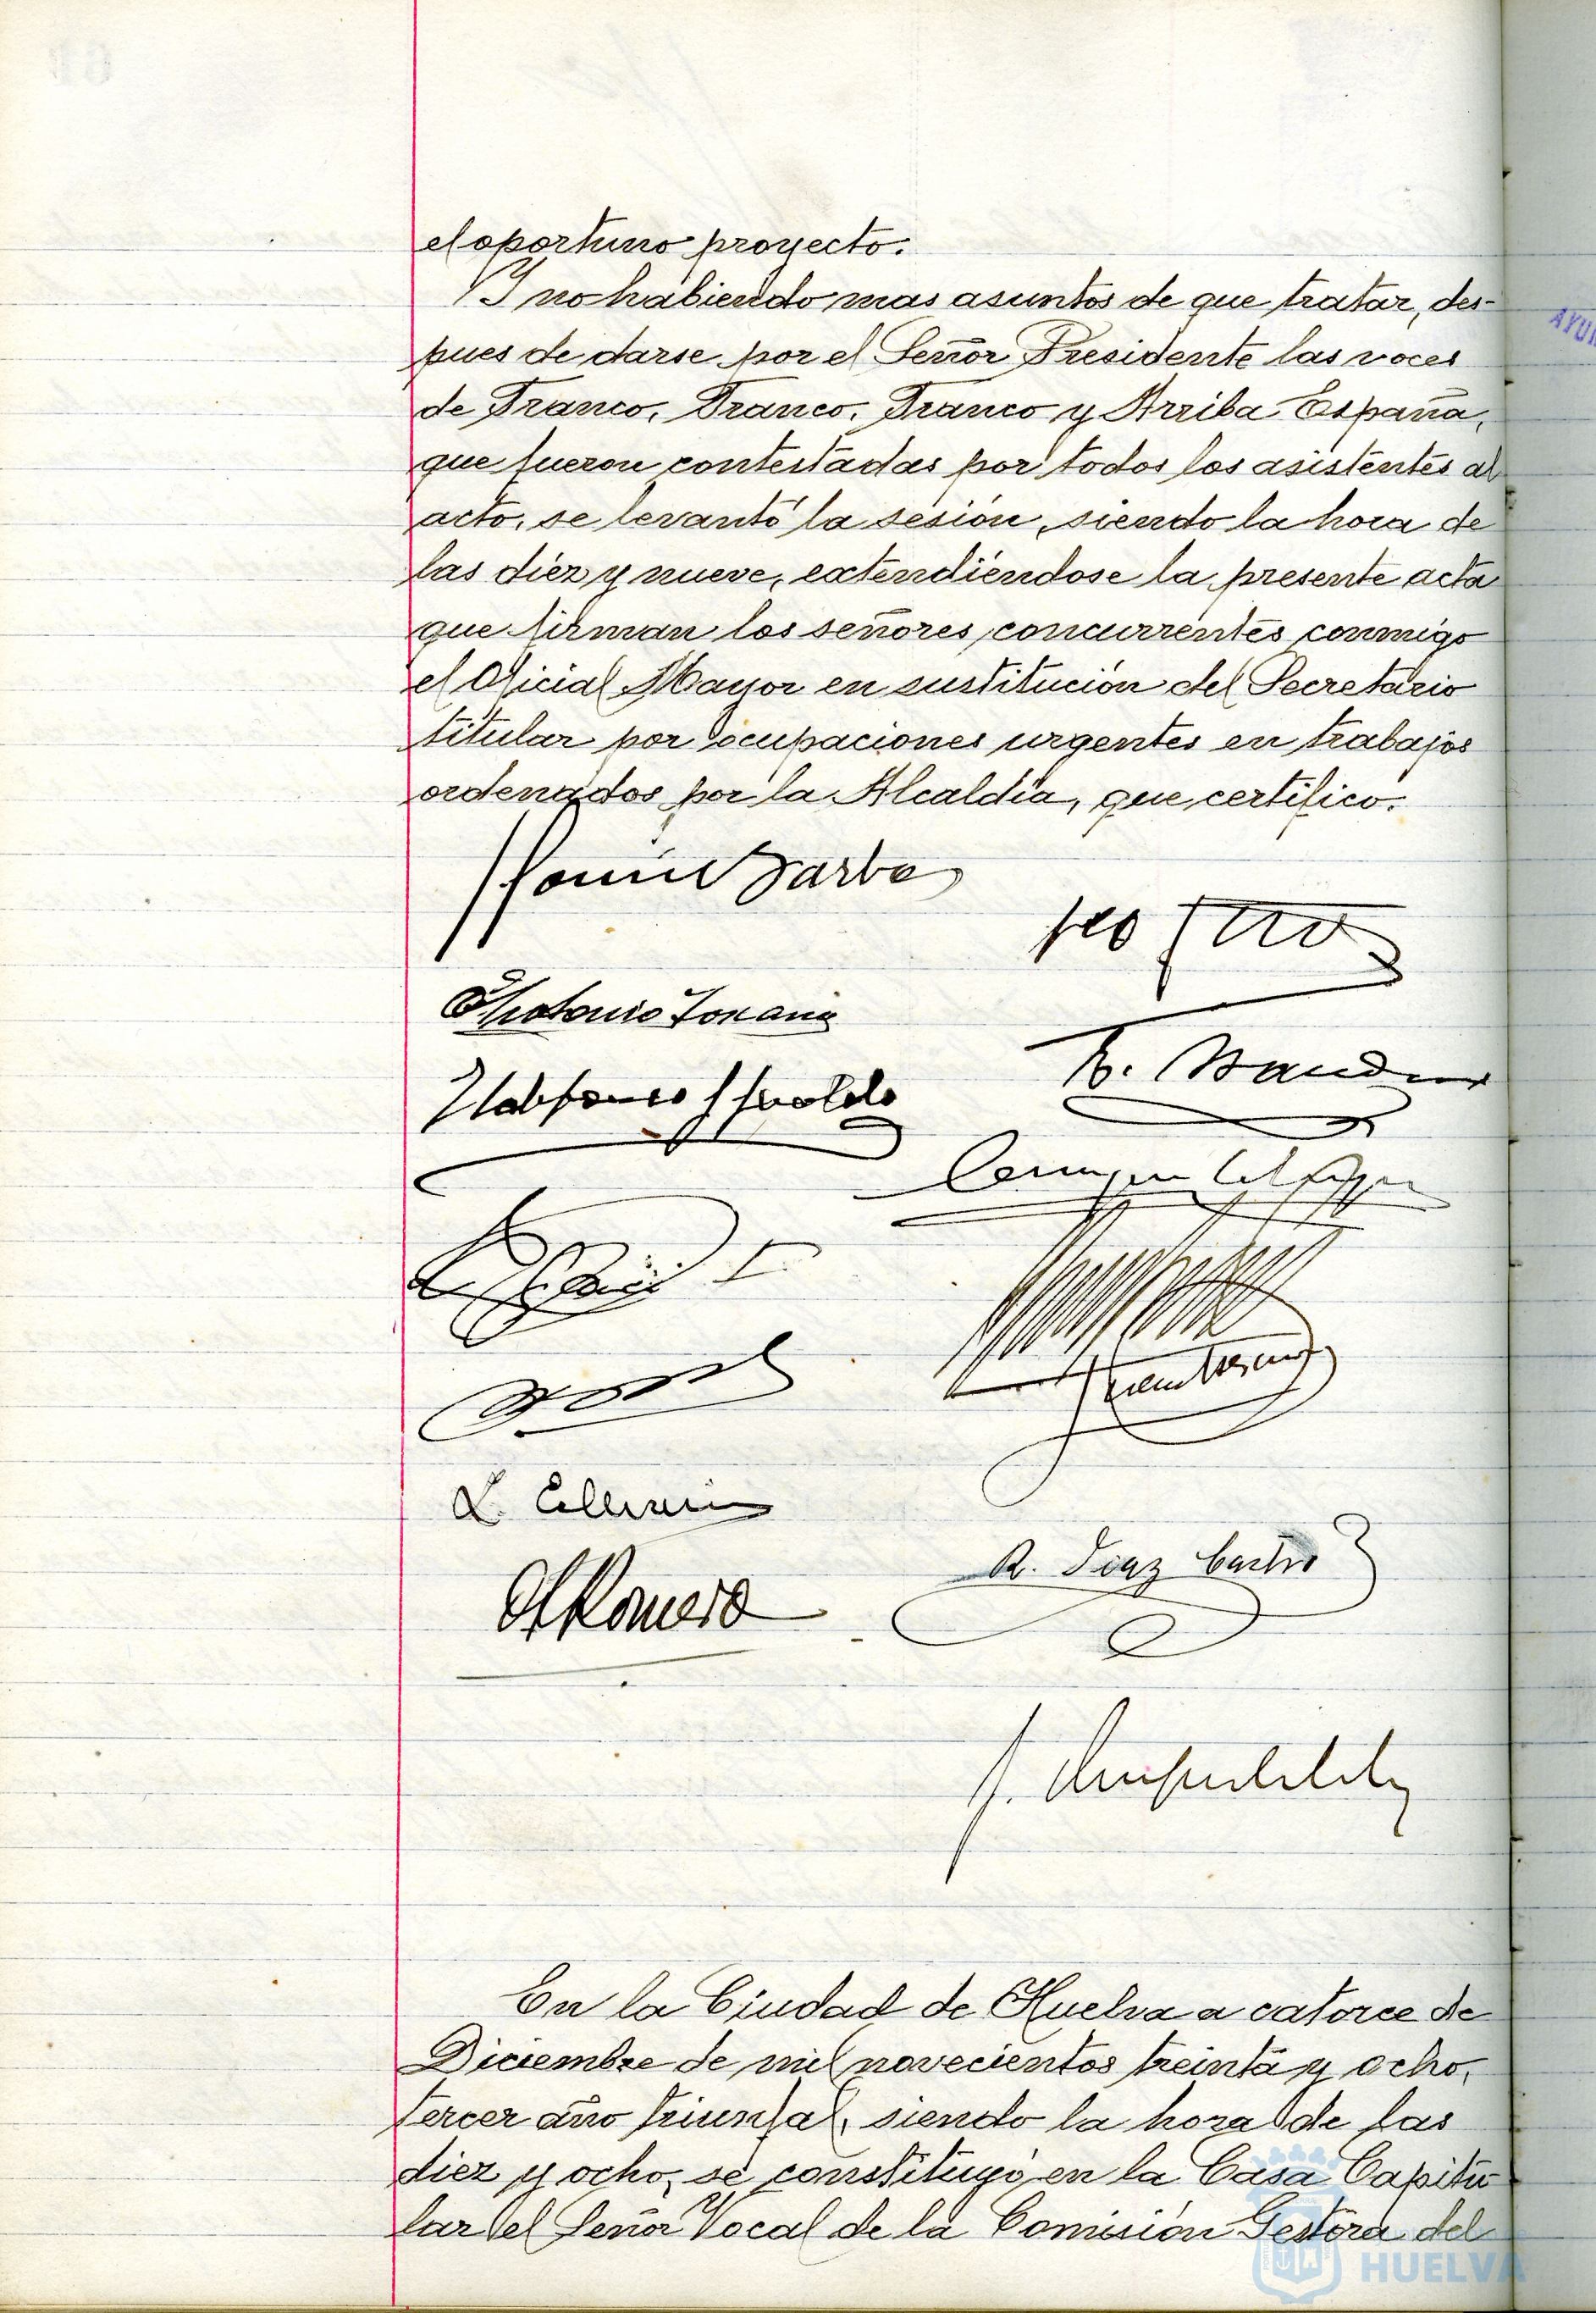 el oportuno proyecto.
Y no habiendo mas asuntos de que tratar, des-
pues de darse por el Señor Presidente las voces
de Franco, Franco, Franco y Arriba España,
que fueron contestadas por todos los asistentes al
acto, se levantó la sesión, siendo la hora de
las diez y nueve, extendiéndose la presente acta
que firman los señores concurrentes conmigo
el Oficial Mayor en sustitución del Secretario
titular por ocupaciones urgentes en trabajos
ordenados por la Alcaldía, que certifico.
Barba
R. Diaz Castro
Romero
En la Ciudad de Huelva a catorce de
Diciembre de mil novecientos treinta y ocho,
tercer año triunfal, siendo la hora de las
diez y ocho, se constituyó en la Casa Capitu
lar el Señor Vocal de la Comisión Gestora del
HUELVA